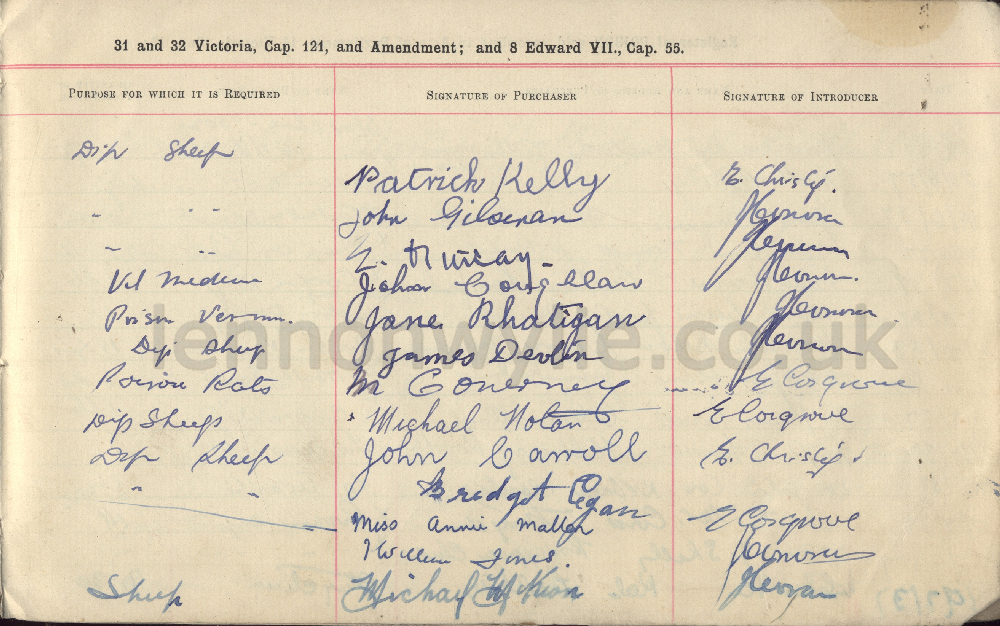 31 and 32 Victoria, Cap. 121, and Amendment; and 8 Edward VII., Cap. 55.
PURPOSE FOR WHICH IT IS REQUIRED SIGNATURE OF PURCHASER SIGNATURE OF INTRODUCER
Dip Sheep
Patrick Kelly E. Christy.
" " " John
" " " Murray
Vet Medicine John
Poison Vermin. Jane Rhatigan
Dip Sheep James Devlin
Poison Rats M E Cosgrove
Dip Sheep Michael Nolan E Cosgrove
Dip Sheep John Carroll E. Christy
" " Bridget Egan
Miss Annie E Cosgrove
William Jones.
Sheep Michael
lennonwylie.co.uk